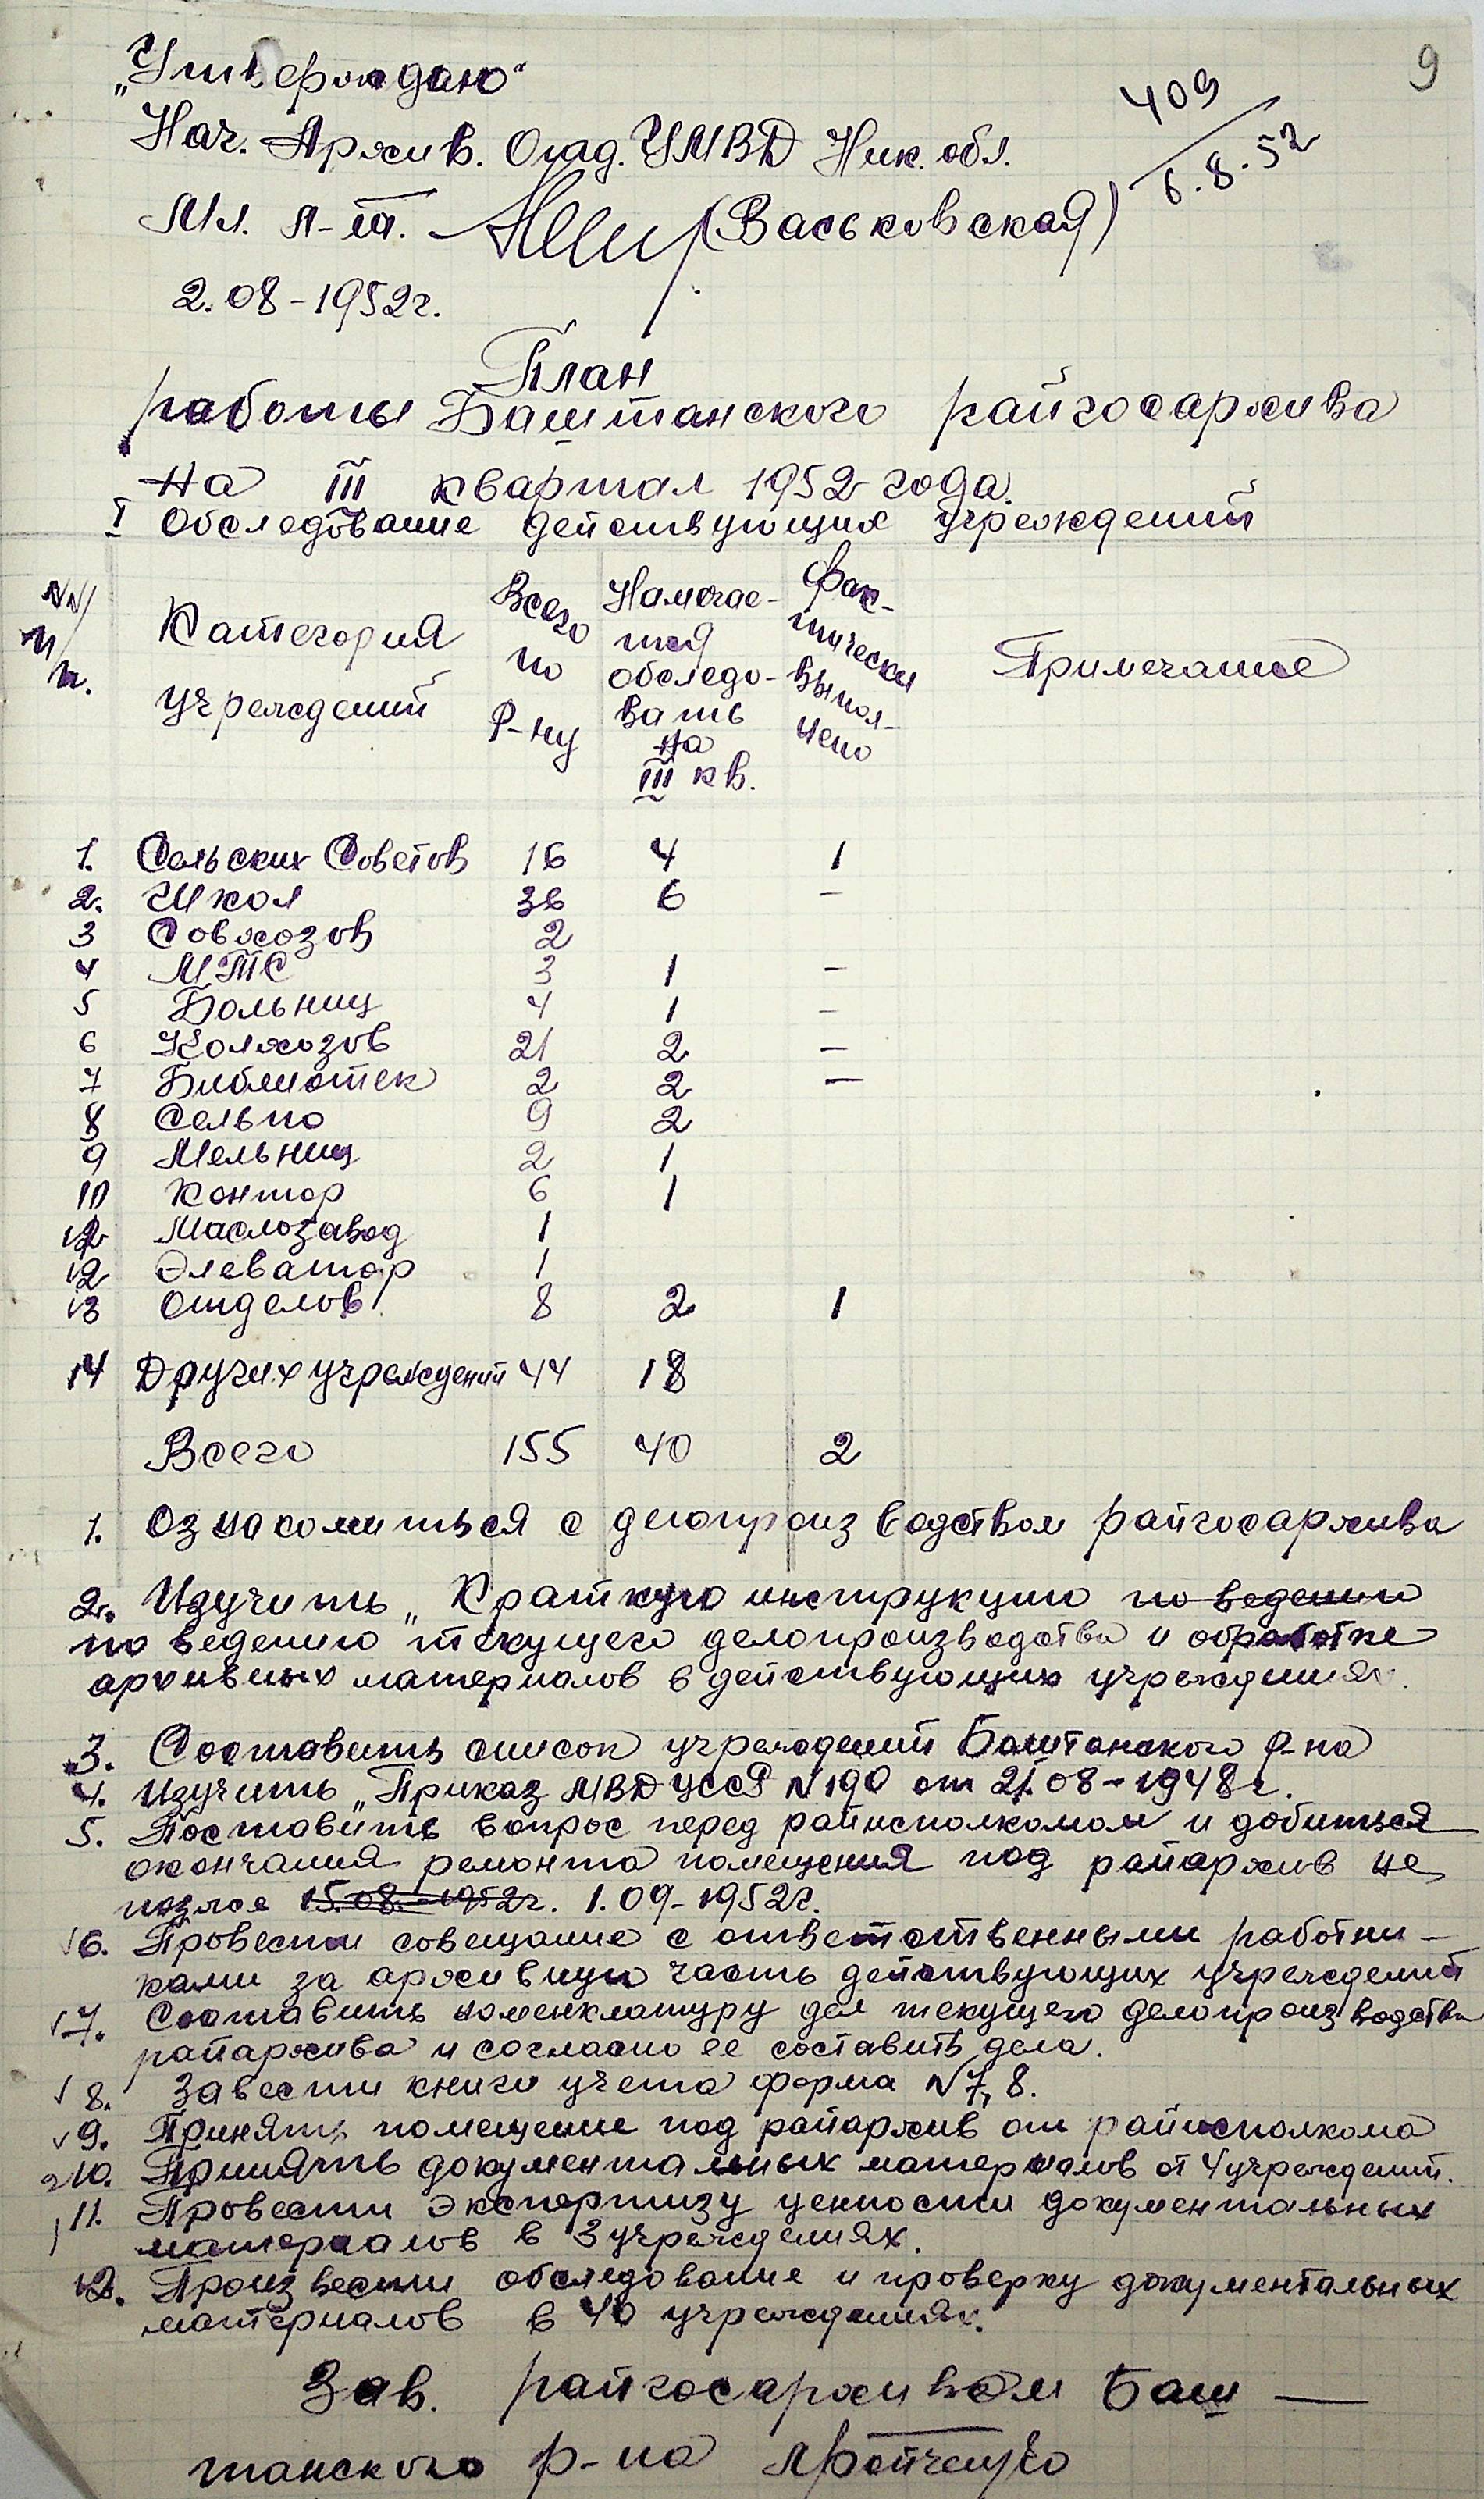 9
„Утверждаю“
409
6.8.52
Нач. Архив. Отд. УМВД Ник. обл.
Мл. л-т. (Васьковская)
2.08-1952г.
План
работы Баштанского райгосархива
на III квартал 1952 года.
I Обследование действующих учреждений
NN/п/п. Категория учреждений Всего по р-ну Намечается обследовать на III кв. Фактически выполнено Примечание
1. Сельских Советов 16 4 1
2. Школ 36 6 –
3 Совхозов 2
4 МТС 3 1 –
5 Больниц 4 1 –
6 Колхозов 21 2 –
7 Библиотек 2 2 –
8 Сельпо 9 2
9 Мельниц 2 1
10 Контор 6 1
12 Маслозавод 1
12 Элеватор 1
13 Отделов 8 2 1
14 Других учреждений 44 18
Всего 155 40 2
1. Ознакомиться с делопроизводством райгосархива
2. Изучить „Краткую инструкцию по ведению
по ведению текущего делопроизводства и обработке
архивных материалов в действующих учреждениях.
3. Составить список учреждений Баштанского р-на
4. Изучить „Приказ МВД УССР N190 от 21.08-1948г.
5. Поставить вопрос перед райисполкомом и добиться
окончания ремонта помещения под райархив не
позже 15.08.-1952г. 1.09-1952г.
√6. Провести совещание с ответственными работни-
ками за архивную часть действующих учреждений
√7. Составить номенклатуру дел текущего делопроизводства
райархива и согласно ее составить дела.
√8. Завести книги учета форма N7, 8.
√9. Принять помещение под райархив от райисполкома
10. Принять документальных материалов от 4 учреждений.
11. Провести экспертизу ценности документальных
материалов в 3 учреждениях.
12. Произвести обследование и проверку документальных
материалов в 40 учреждениях.
Зав. райгосархивом Баш—
танского р-на